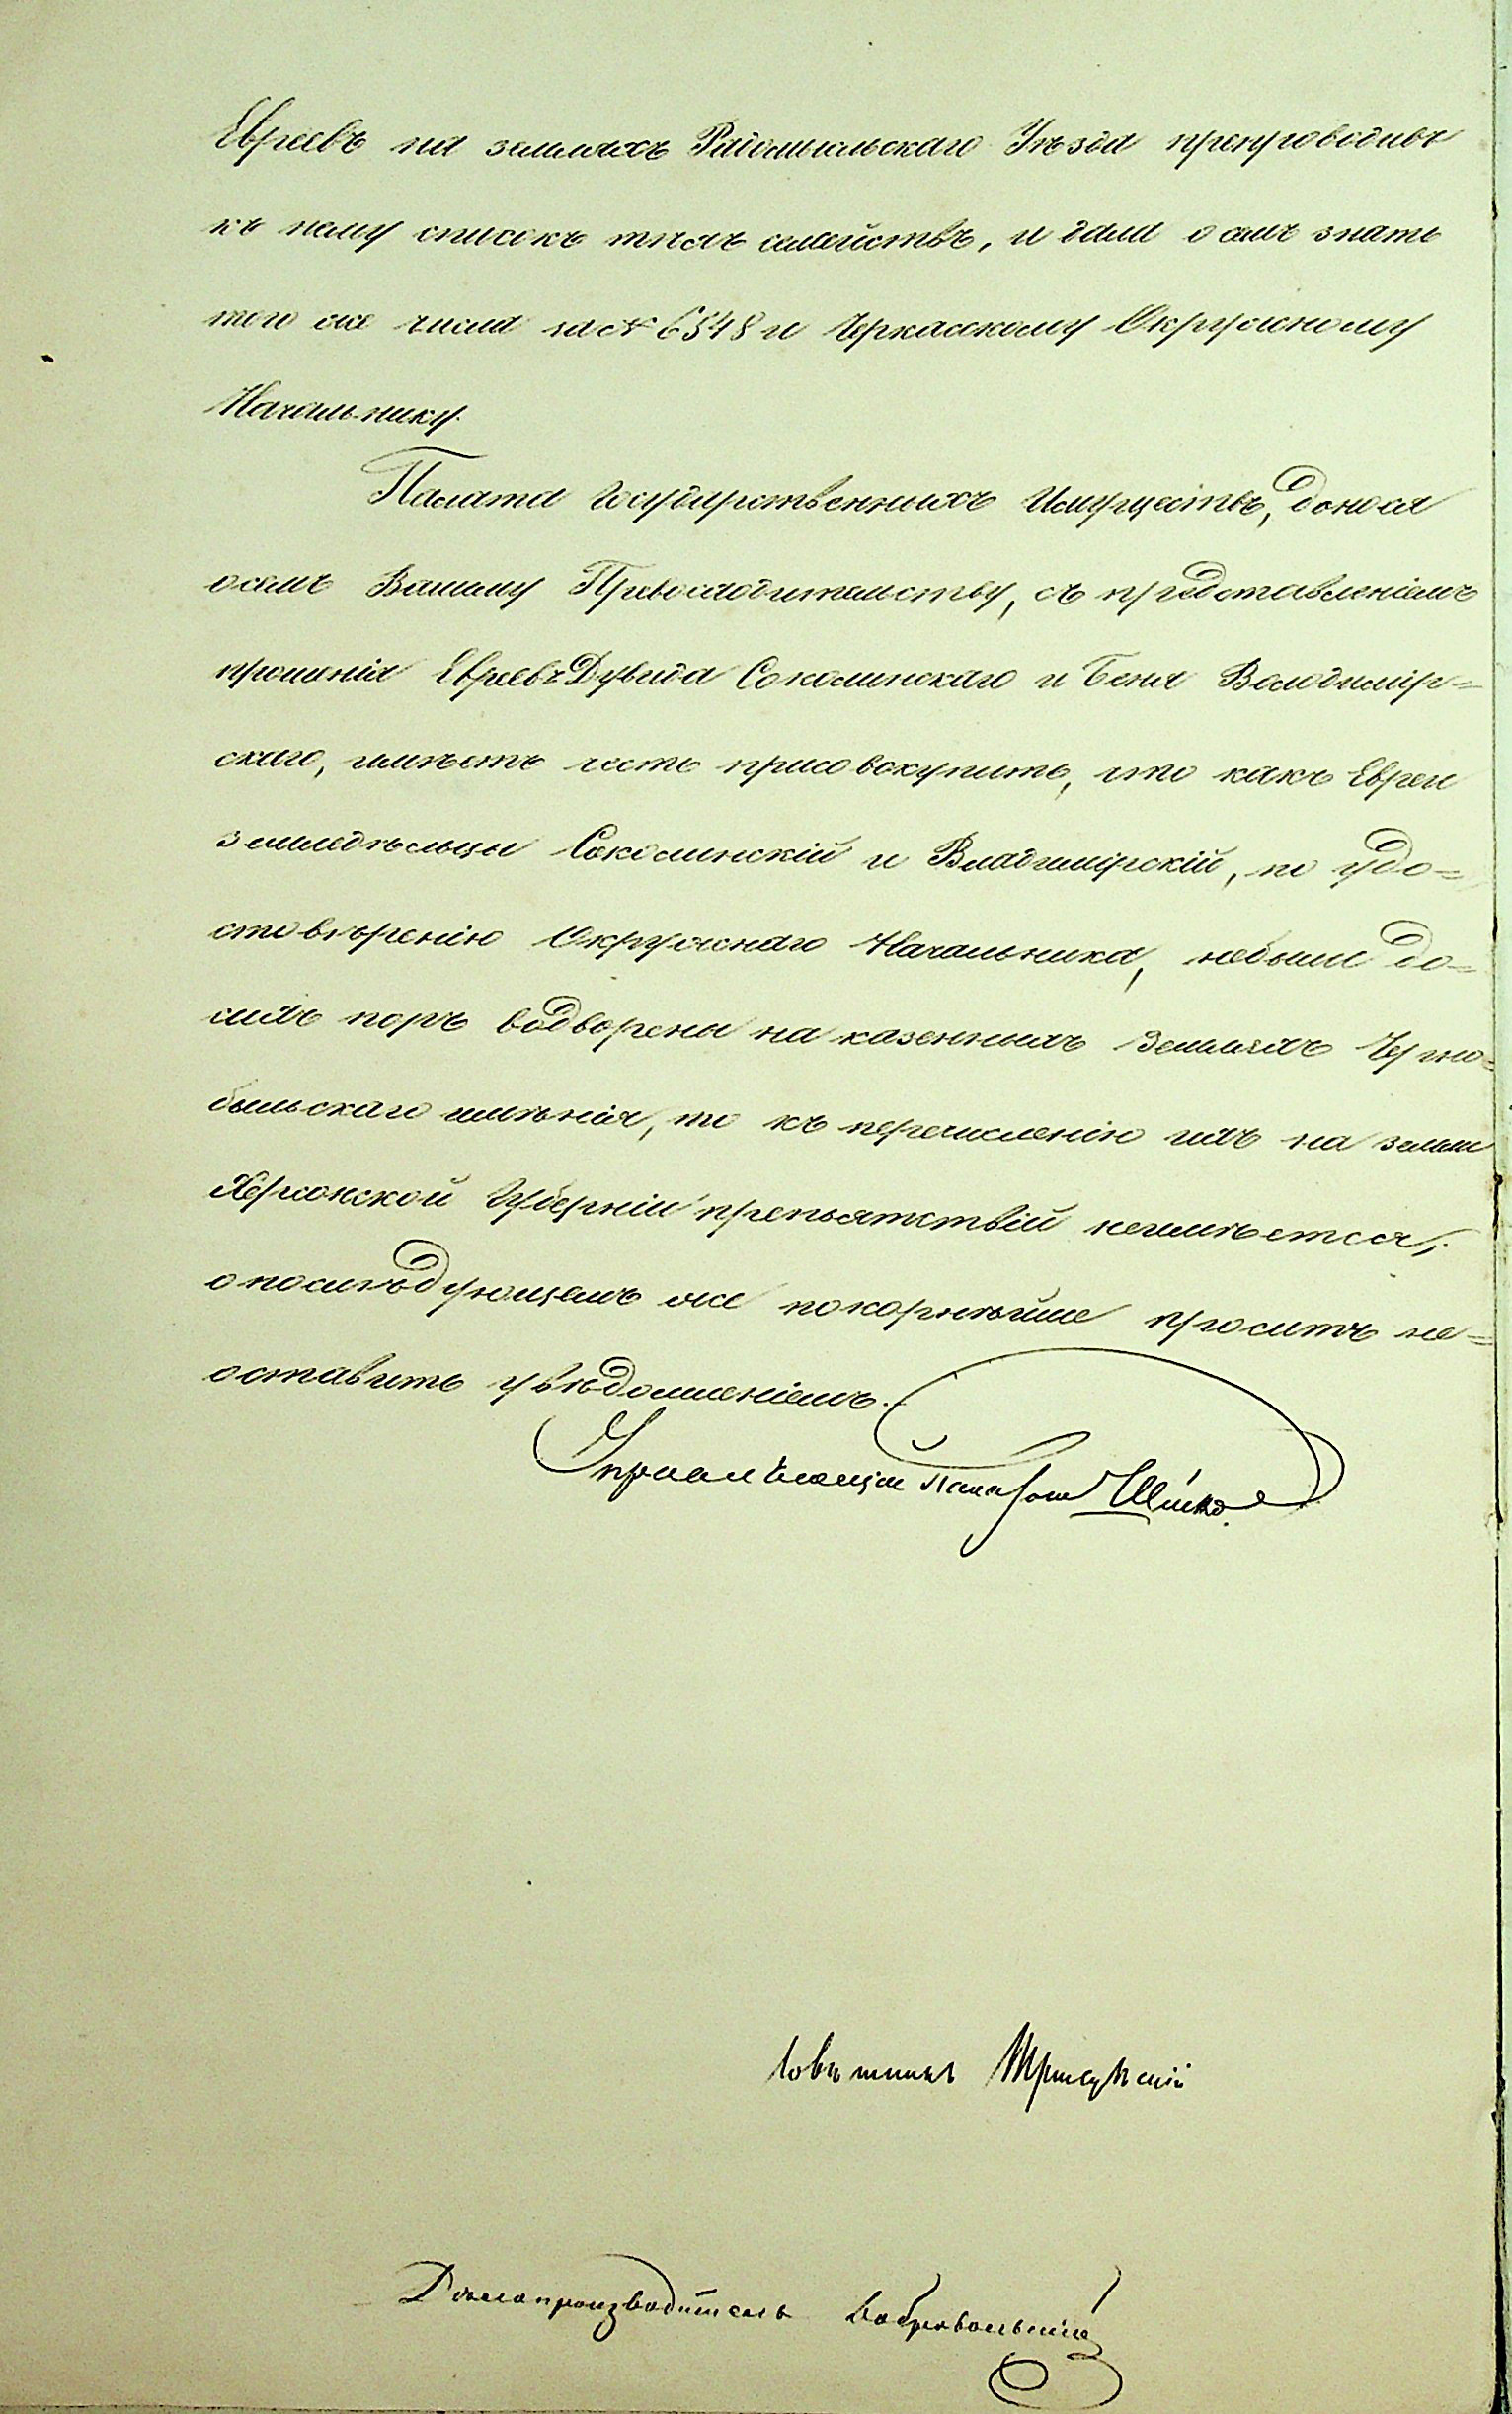 Евреевъ на земляхъ Радомысльскаго Уѣзда препроводивъ
къ нему списокъ тѣхъ семействъ, и дала о семъ знать
того же числа за № 6348 и Черкасскому Окружному
Начальнику.
Палата Государственныхъ Имуществъ, донося
осемъ Вашему Превосходительству, съ представленіемъ
прошенія Евреевъ Дувида Соколинскаго и Беня Володимір=
скаго, имѣетъ честь присовокупить, что какъ Евреи
земледѣльцы Соколинскій и Владимірскій, по удо=
стовѣренію Окружнаго Начальника, небыли до=
сихъ поръ водворены на казенныхъ земляхъ Черно=
быльскаго имѣнія, то къ перечисленію ихъ на земли
Херсонской Губерніи препьятствій неимѣется;
о послѣдующемъ же покорнѣйше проситъ не=
оставить увѣдомленіемъ.
Управляющій Палатою
Совѣтникъ
Дѣлопроизводитель